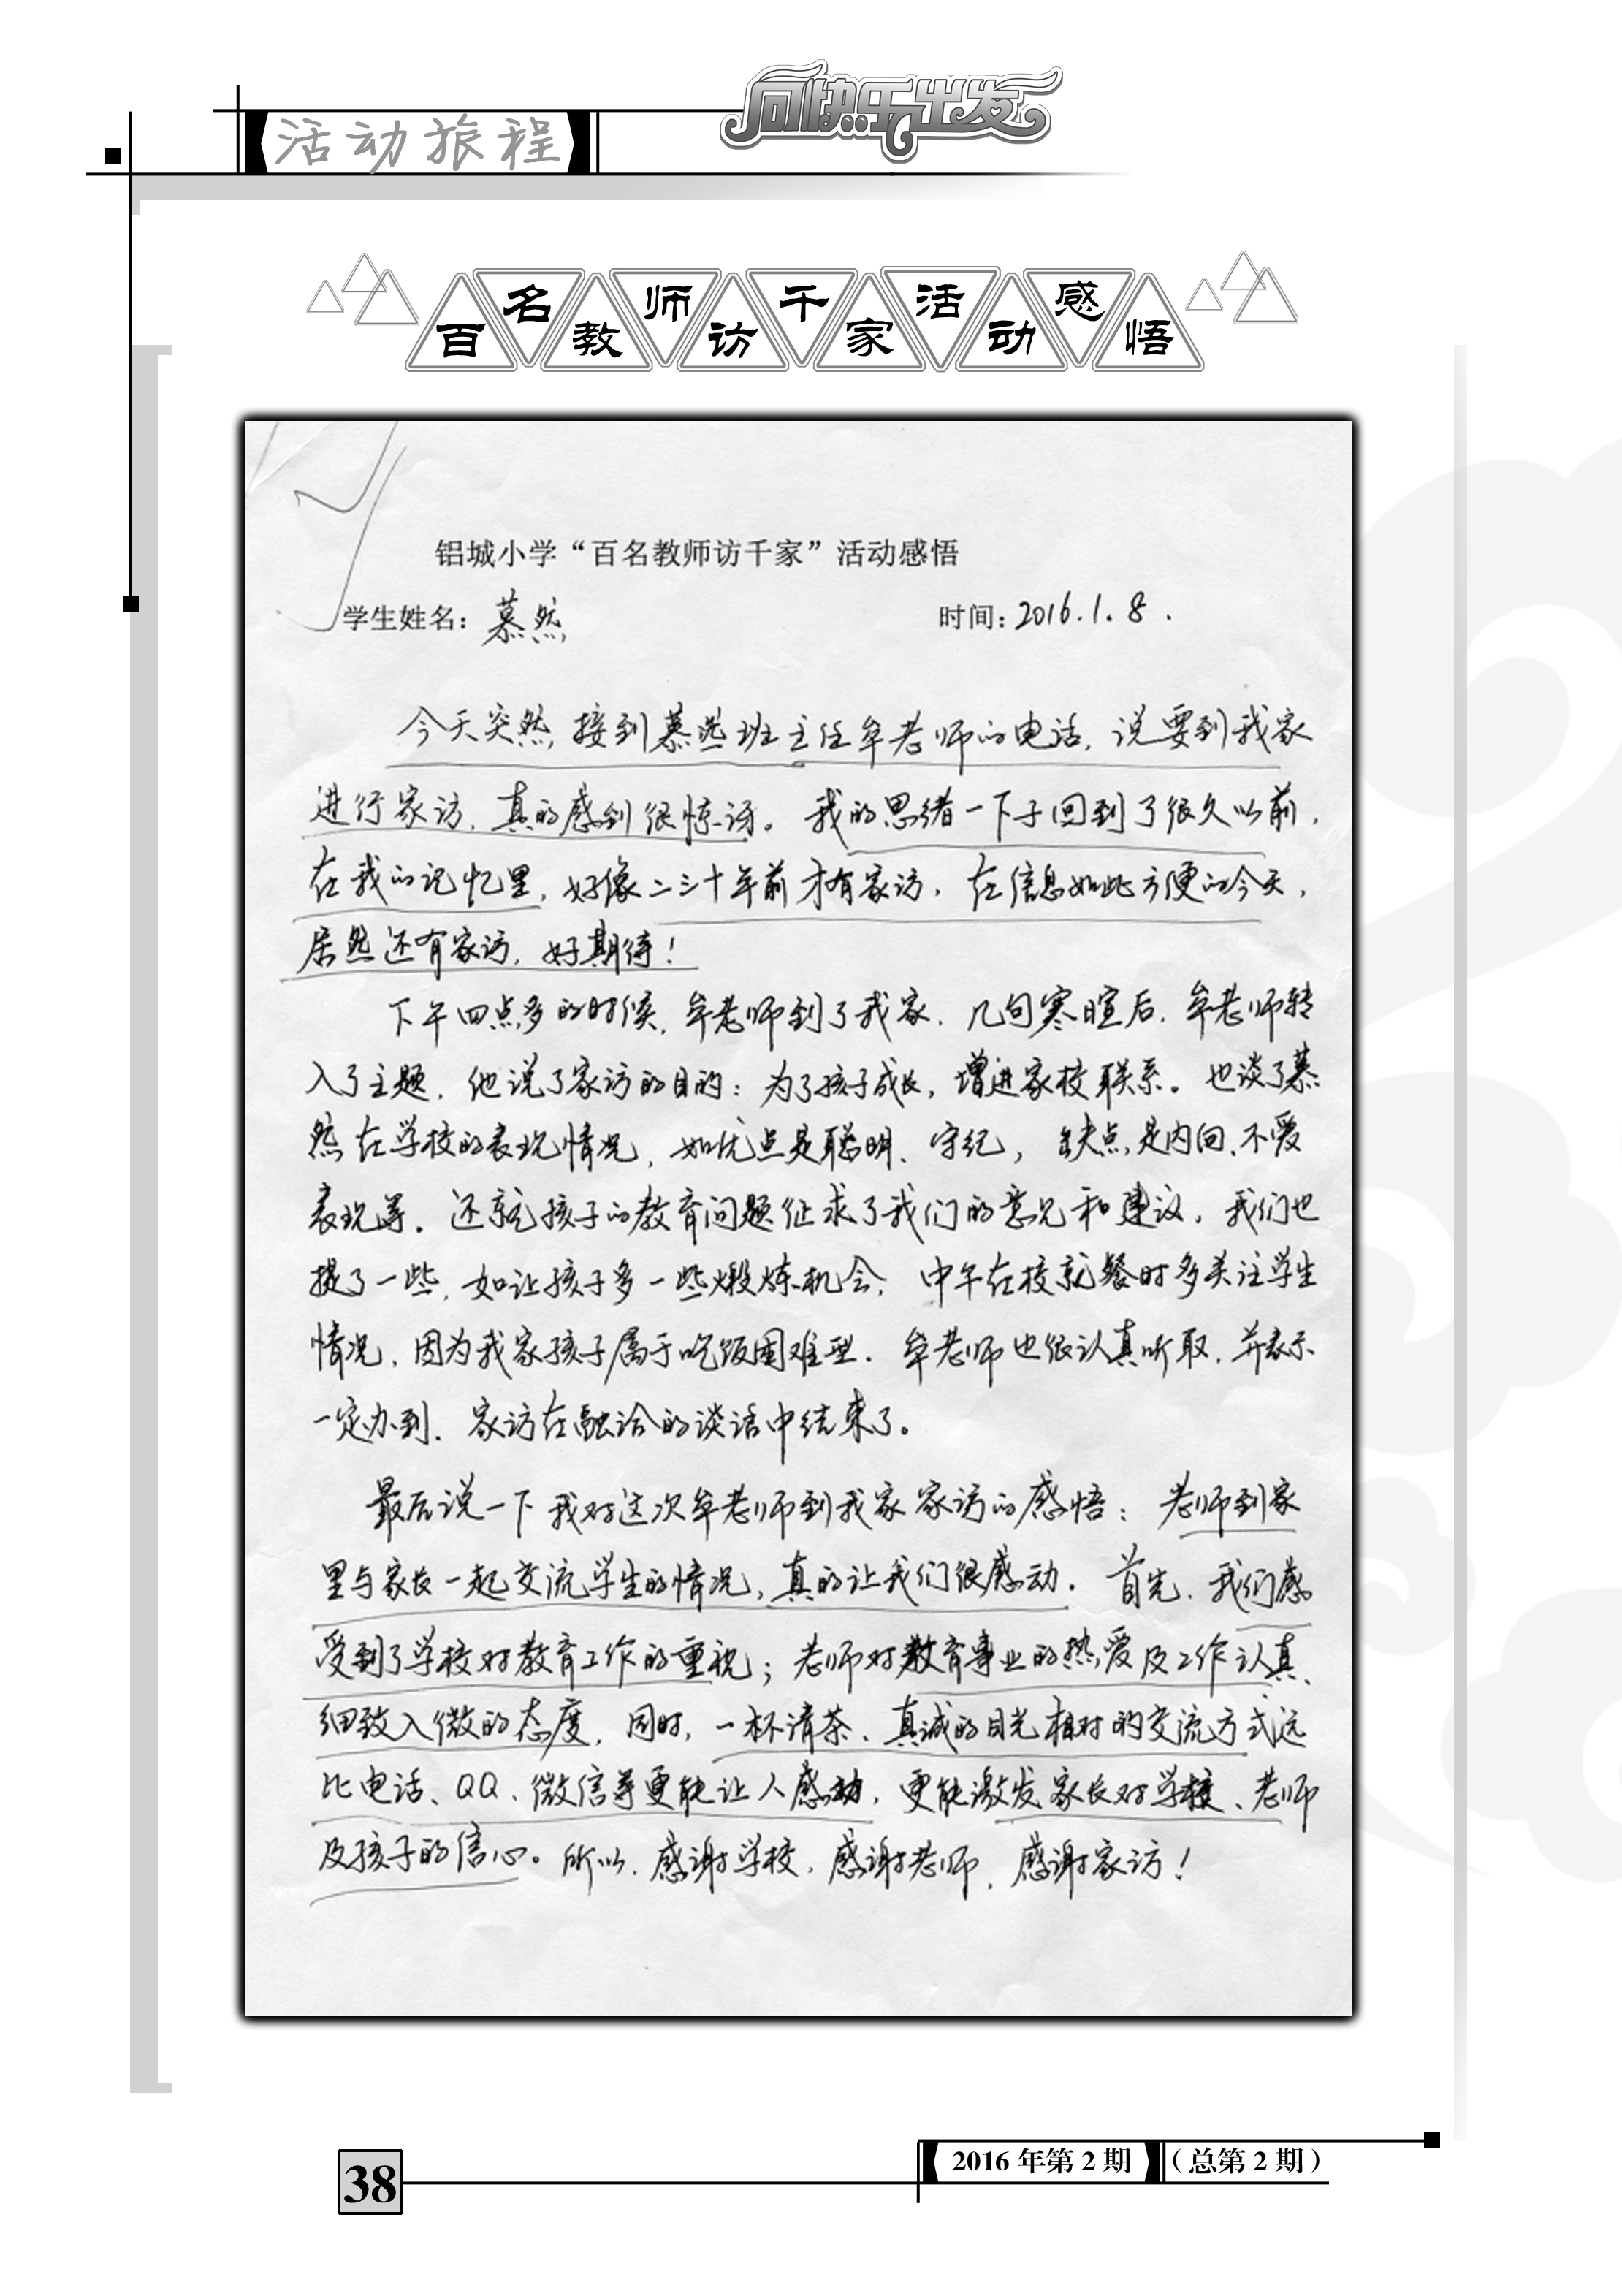 活动旅程
向快乐出发
百名教师访千家活动感悟
铝城小学“百名教师访千家”活动感悟
学生姓名：慕然 时间：2016.1.8.
今天突然接到慕然班主任牟老师的电话，说要到我家
进行家访，真的感到很惊讶。我的思绪一下子回到了很久以前，
在我的记忆里，好像二三十年前才有家访，在信息如此方便的今天，
居然还有家访，好期待！
下午四点多的时候，牟老师到了我家，几句寒暄后，牟老师转
入了主题，他说了家访的目的：为了孩子成长，增进家校联系。也谈了慕
然在学校的表现情况，如优点是聪明、守纪，缺点是内向、不爱
表现等。还就孩子的教育问题征求了我们的意见和建议，我们也
提了一些，如让孩子多一些煅炼机会，中午在校就餐时多关注学生
情况，因为我家孩子属于吃饭困难型。牟老师也很认真听取，并表示
一定办到，家访在融洽的谈话中结束了。
最后说一下我对这次牟老师到我家家访的感悟：老师到家
里与家长一起交流学生的情况，真的让我们很感动。首先，我们感
受到了学校对教育工作的重视；老师对教育事业的热爱及工作认真、
细致入微的态度，同时，一杯清茶、真诚的目光相对的交流方式远
比电话、QQ、微信等更能让人感动，更能激发家长对学校、老师
及孩子的信心。所以，感谢学校，感谢老师，感谢家访！
38
2016年第2期（总第2期）